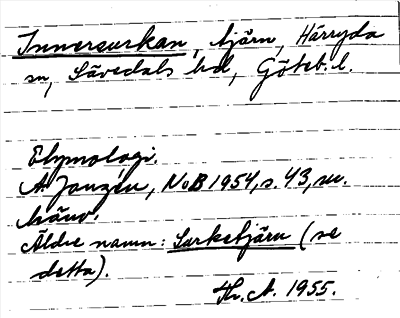 Innersurkan, tjärn, Härryda
sn, Sävedals hd, Göteb. l.
Etymologi.
A. Janzén, NoB 1954, s. 43, m.
hänv.
Äldre namn: Surketjärn (se
detta).
Th. A. 1955.